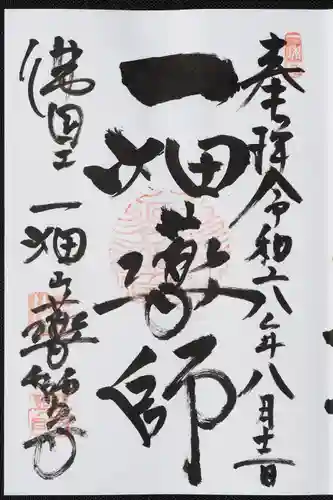 奉拝 令和六年八月十一日
一畑薬師
佛国王 一畑山薬師寺